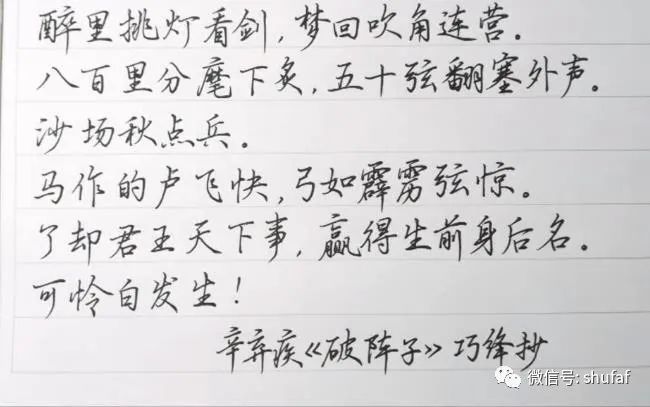 醉里挑灯看剑,梦回吹角连营。
八百里分麾下炙,五十弦翻塞外声。
沙场秋点兵。
马作的卢飞快,弓如霹雳弦惊。
了却君王天下事,赢得生前身后名。
可怜白发生!
辛弃疾《破阵子》巧绛抄
微信号: shufaf